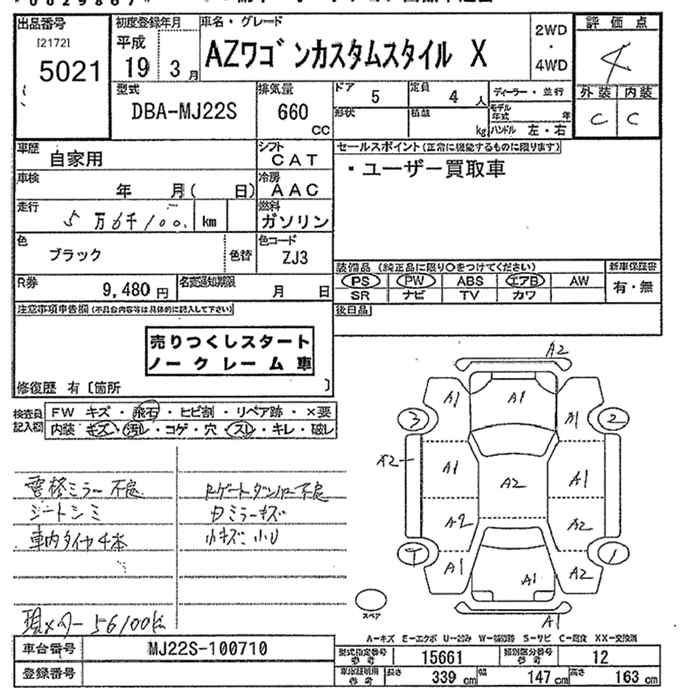 出品番号 初度登録年月 車名・グレード 2WD・4WD 評価点
[2172] 5021 平成 19年 3月 AZワゴンカスタムスタイル X 4
型式 排気量 ドア 5 定員 4人 ディーラー・並行 外装 内装
DBA-MJ22S 660 cc 形状 積載 kg モデル年式 年 C C
ハンドル 左・右
車歴 自家用 シフト CAT セールスポイント(正常に機能するものに限ります)
車検 年 月( 日) 冷房 AAC ・ユーザー買取車
走行 5万6千100 km 燃料 ガソリン
色 ブラック 色替 色コード ZJ3
装備品 (純正品に限り○をつけてください) 新車保証書
R券 9,480円 名変通知期限 月 日 PS PW ABS エアB AW 有・無
SR ナビ TV カワ
注意事項申告欄(不具合内容等は具体的に記入して下さい) 後日品
売りつくしスタート
ノークレーム車
修復歴 有〔箇所 〕
検査員記入欄 FW キズ・飛石・ヒビ割・リペア跡・×要
内装 キズ・汚レ・コゲ・穴・スレ・キレ・破レ
A2
A1 A1 A1
3 2
A2 A1 A1
A2
A2 A2
A1 A2
1
A1
雲格ミラー不良 Rゲートダンパー不良
シートシミ 内ミラーキズ
車内タイヤ4本 小キズ小U
スペア
現メーター56100km
A-キズ E-エクボ U-凹み W-補修跡 S-サビ C-腐食 XX-交換済
車台番号 MJ22S-100710 型式指定番号 参考 15661 類別区分番号 参考 12
登録番号 車検証明用 参考 長さ 339cm 幅 147cm 高さ 163cm